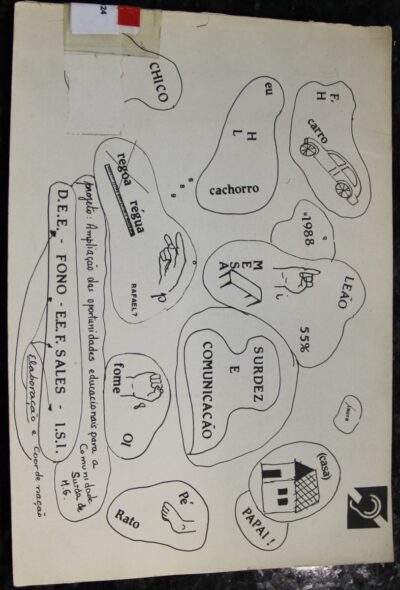 F.
H
carro
1988
LEÃO
55%
(casa)
PAPAI!
eu
H
L
cachorro
M
E
S
A
i
SURDEZ
E
COMUNICAÇÃO
CHICO
regoa régua
RAFAEL?
p
8
fome
OI
Pé
Rato
projeto: Ampliação das oportunidades educacionais para a
Comunidade
Surda de
M.G.
D.E.E. - FONO - E.E.F. SALES - I.S.I.
Elaboração e Coordenação
24